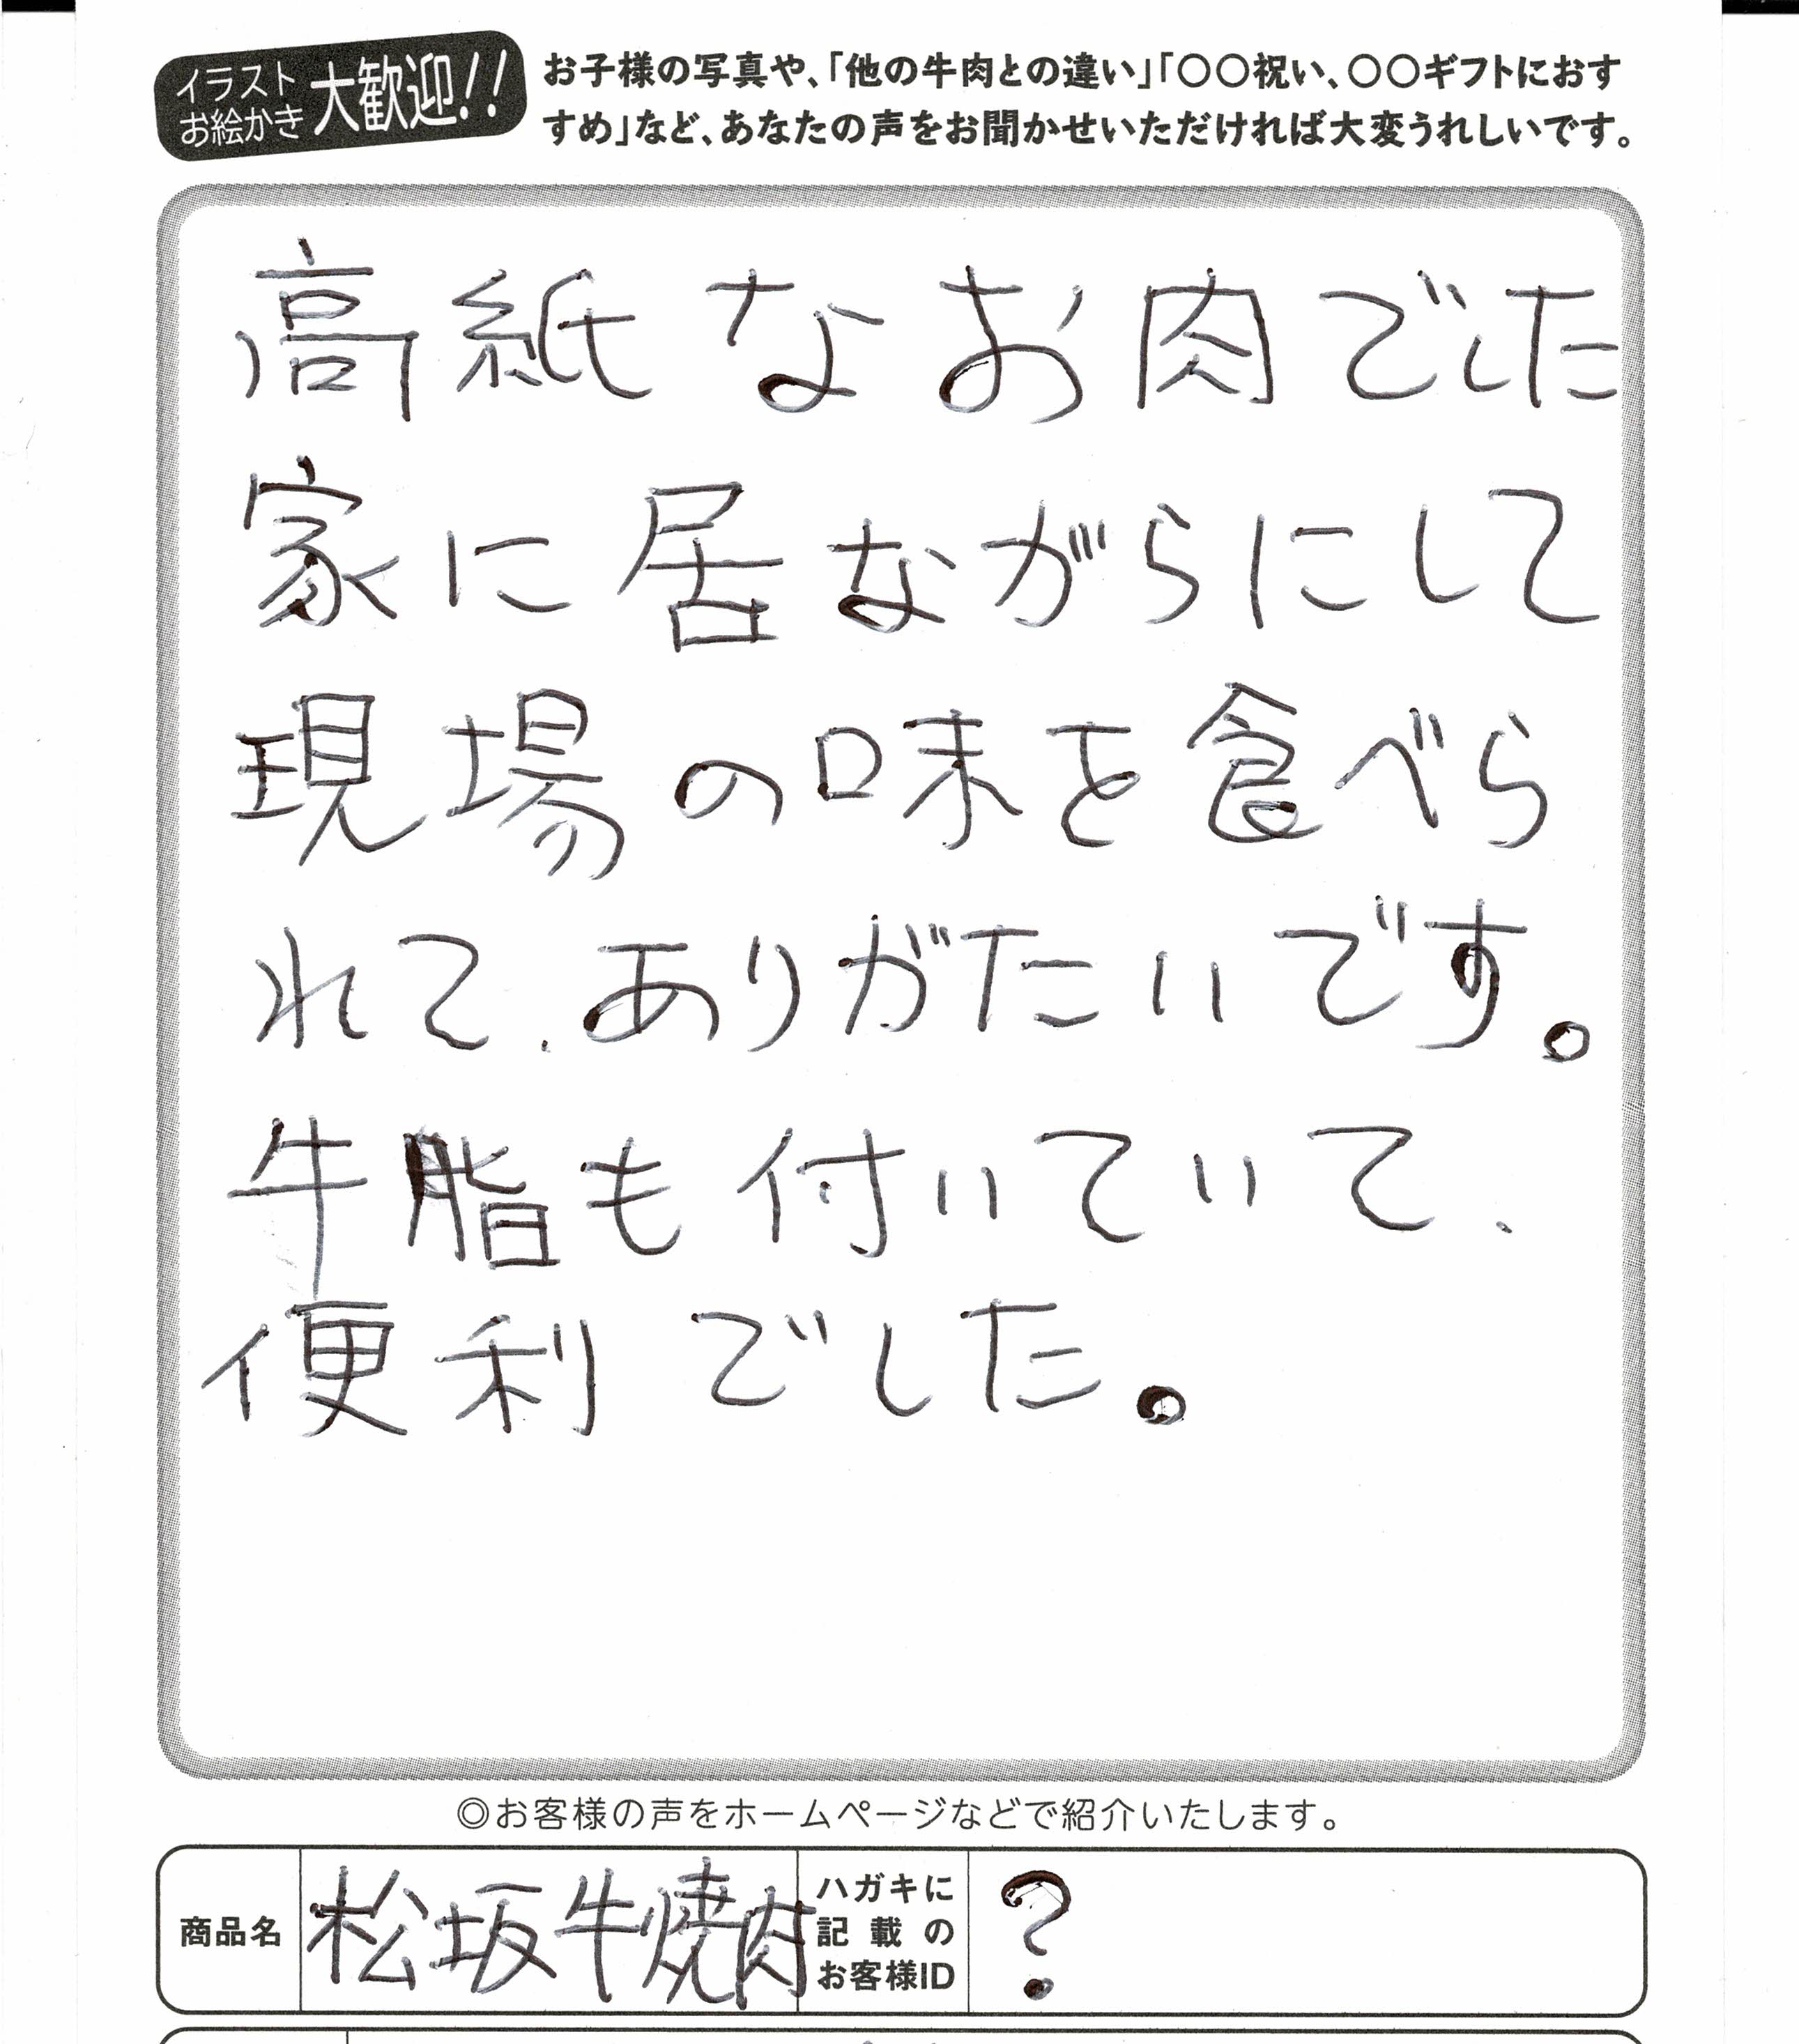 イラスト
お絵かき
大歓迎!!
お子様の写真や、「他の牛肉との違い」「〇〇祝い、〇〇ギフトにおす
すめ」など、あなたの声をお聞かせいただければ大変うれしいです。
高紙なお肉でした
家に居ながらにして
現場の味を食べら
れて、ありがたいです。
牛脂も付いていて、
便利でした。
◎お客様の声をホームページなどで紹介いたします。
商品名
松坂牛焼肉
ハガキに
記載の
お客様ID
?